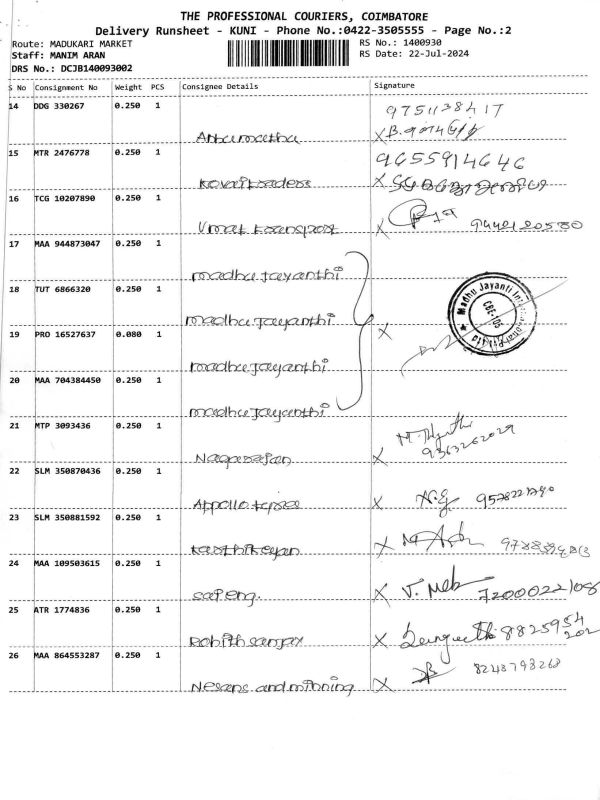 THE PROFESSIONAL COURIERS, COIMBATORE
Delivery Runsheet - KUNI - Phone No.:0422-3505555 - Page No.:2
Route: MADUKARI MARKET
RS No.: 1400930
Staff: MANIM ARAN
RS Date: 22-Jul-2024
DRS No.: DCJB140093002
S No Consignment No Weight PCS Consignee Details Signature
14 DDG 330267 0.250 1
9751138417
X
15 MTR 2476778 0.250 1
9655914646
kovai traders X
16 TCG 10207890 0.250 1
Vmat transport X 9442120580
17 MAA 944873047 0.250 1
madhu Jayanthi
18 TUT 6866320 0.250 1
madhu Jayanthi
Madhu Jayanti International Pvt Ltd
CBE-105
19 PRO 16527637 0.080 1
X
madhu Jayanthi
20 MAA 704384450 0.250 1
madhu Jayanthi
21 MTP 3093436 0.250 1
9363262029
Nagarajan X
22 SLM 350870436 0.250 1
Appollo tyres X N.G
23 SLM 350881592 0.250 1
karthikeyan X
24 MAA 109503615 0.250 1
sai eng. X 7200022108
25 ATR 1774836 0.250 1
Rohith sanjay X 8825954
202
26 MAA 864553287 0.250 1
8248798268
Nesans and mihning X